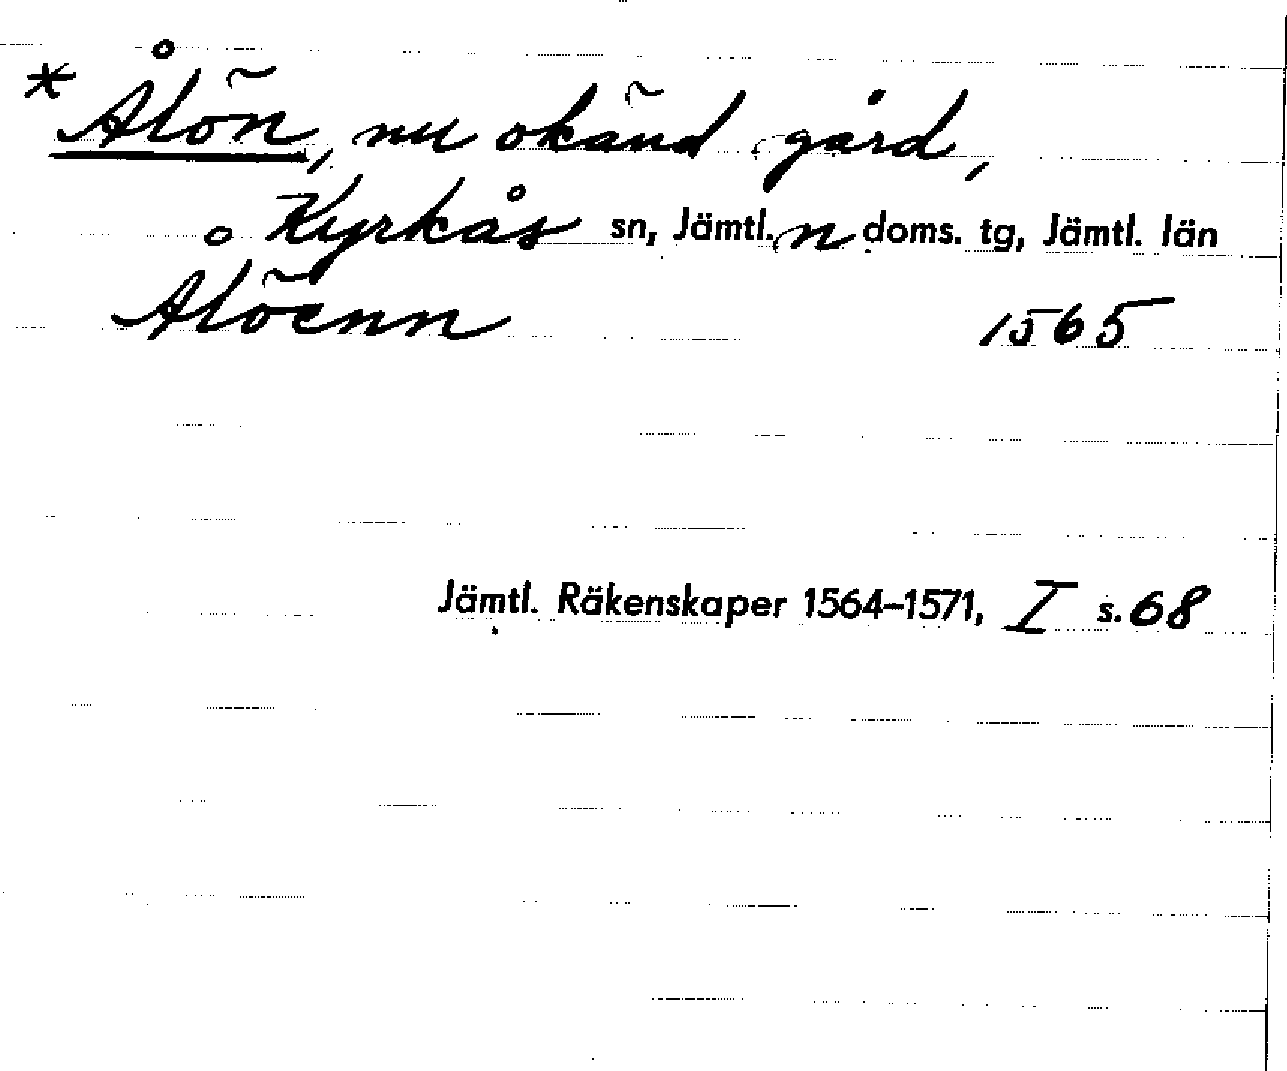 * Ålön, nu okänd gård,
o Kyrkås sn, Jämtl. n doms. tg, Jämtl. län
Alöenn 1565
Jämtl. Räkenskaper 1564–1571, I s. 68